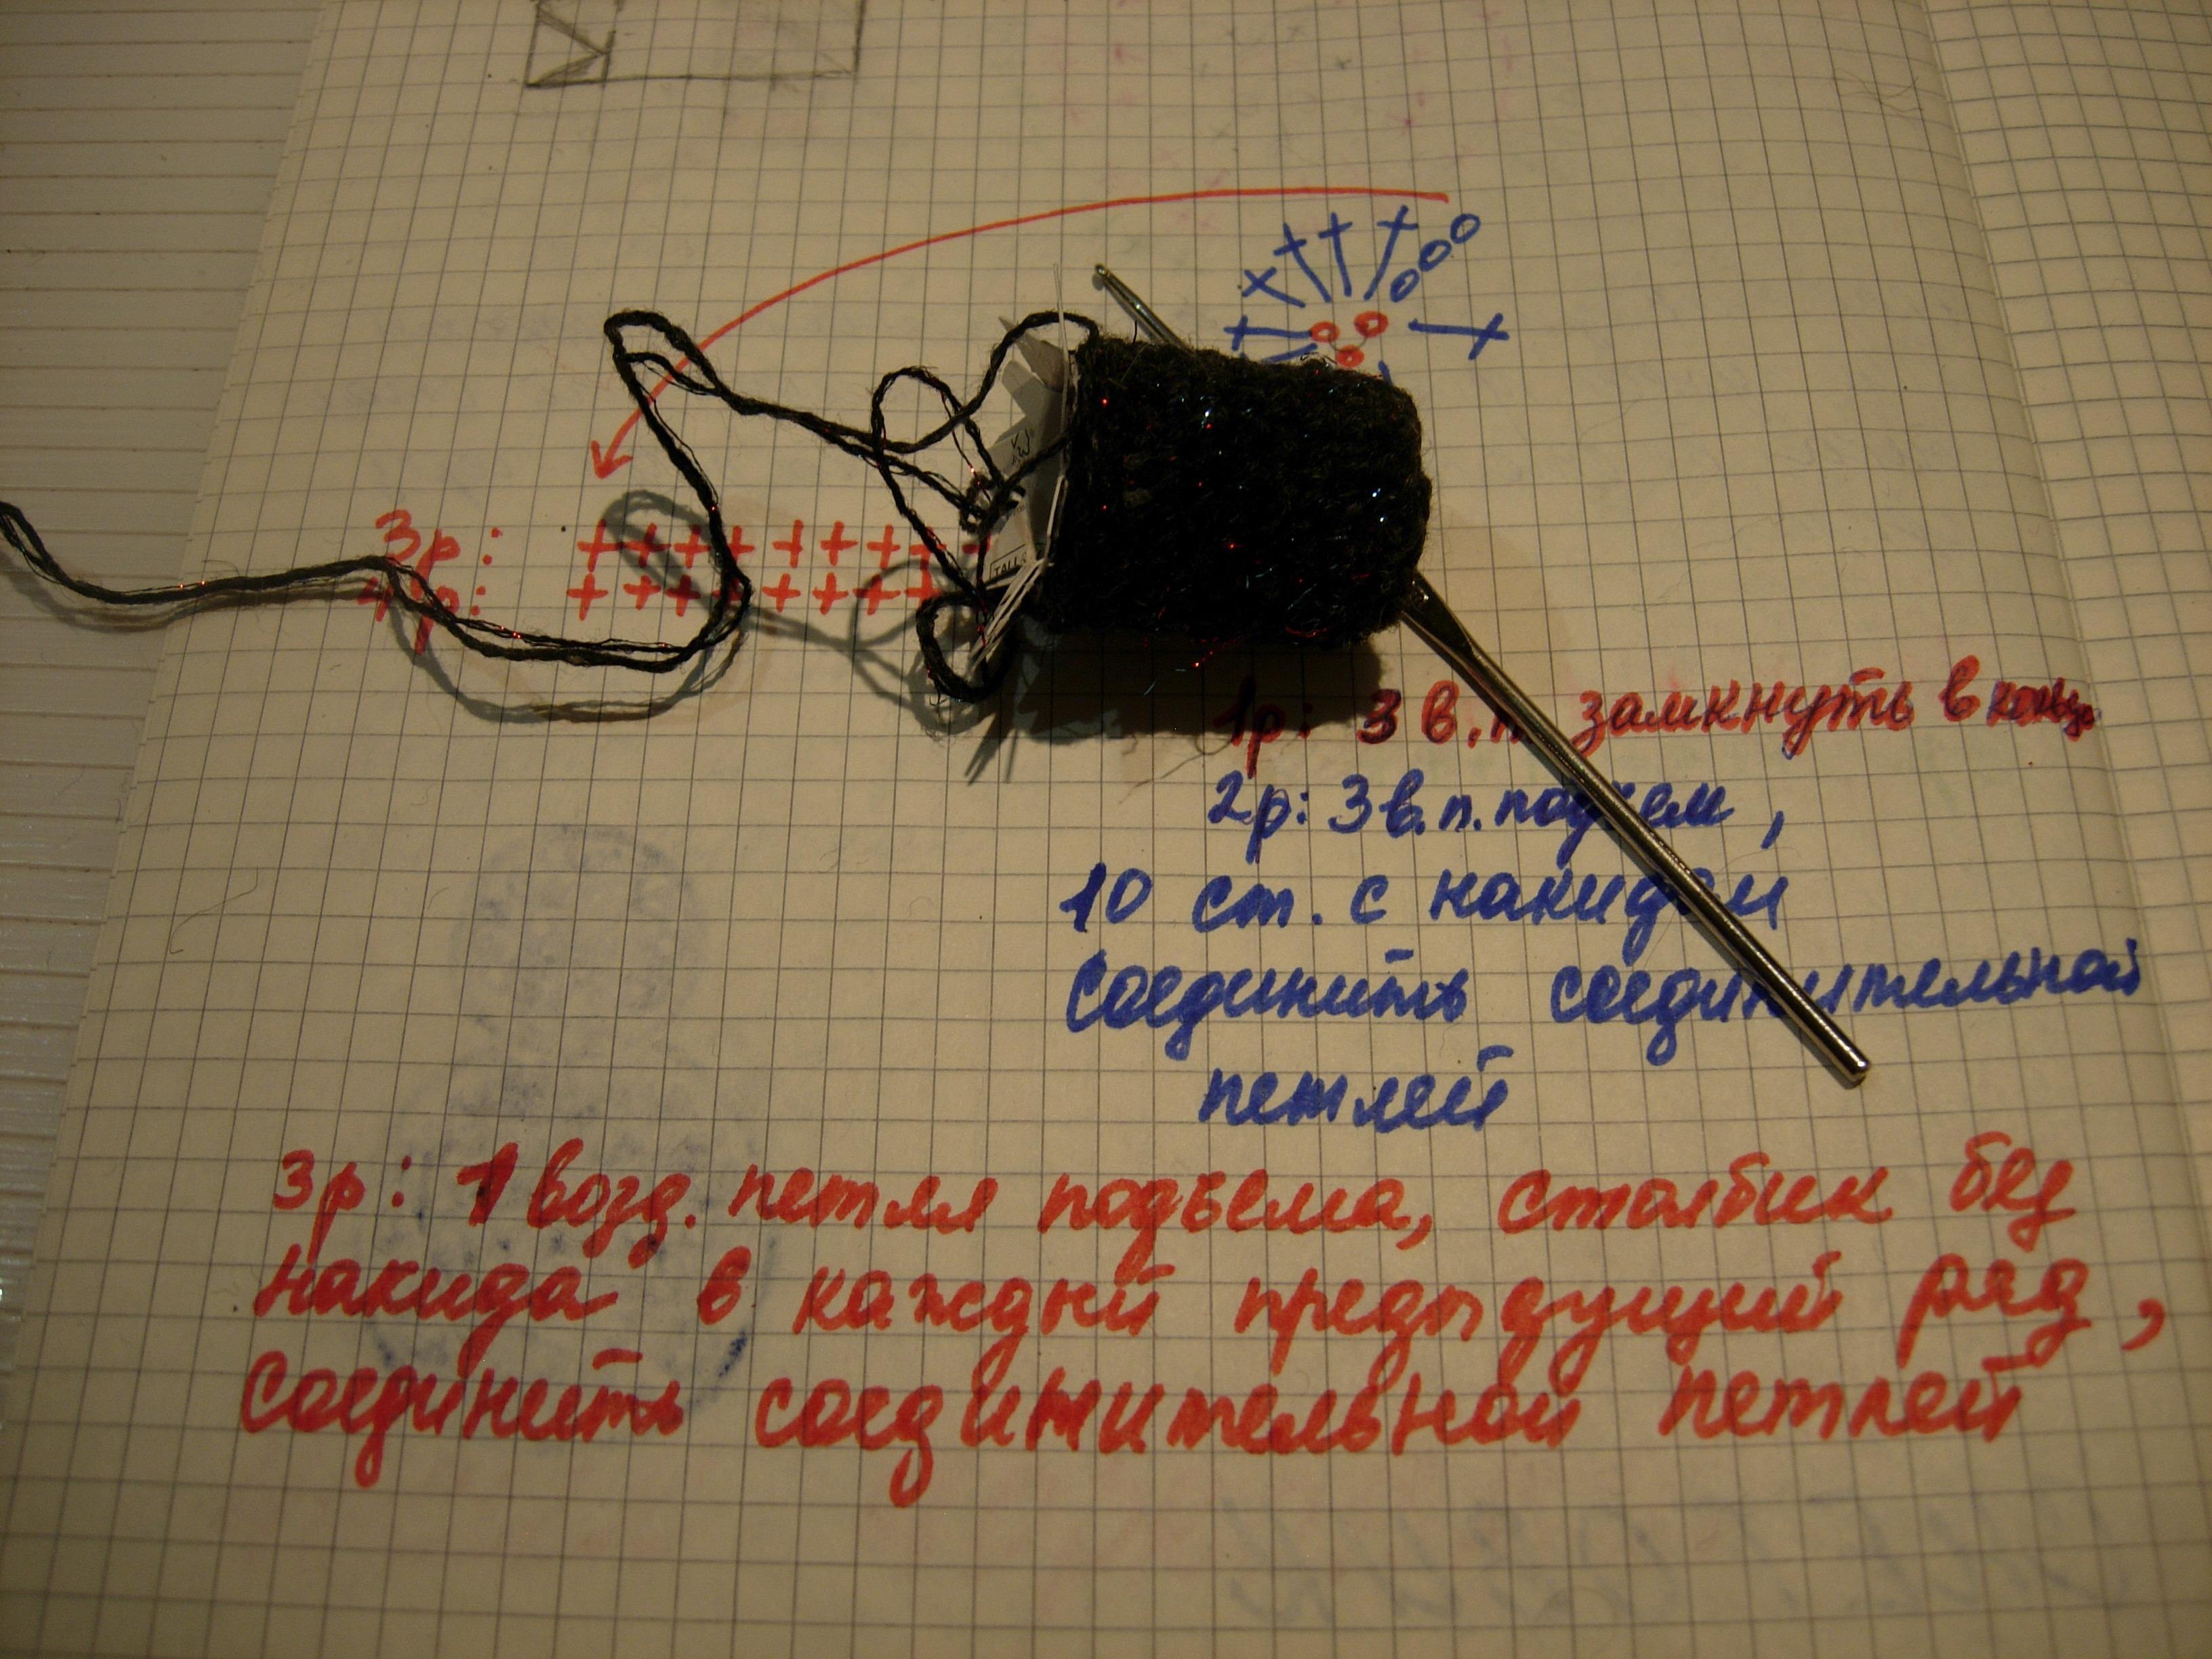 3р:
4р:
1р: 3 в.п замкнуть в кольцо
2р: 3 в.п. подъем,
10 ст. с накидом
соединить соединительной
петлей
3р: 1 возд. петля подъема, столбик без
накида в каждый предыдущий ряд,
соединить соединительной петлей